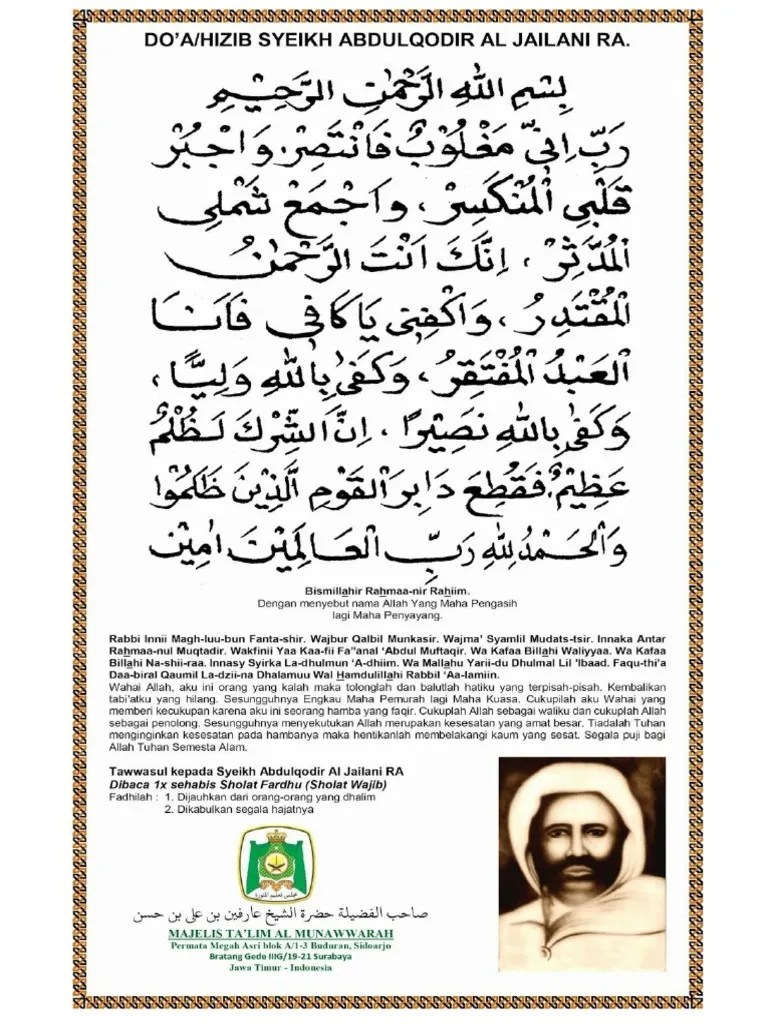 DO'A/HIZIB SYEIKH ABDULQODIR AL JAILANI RA.
بِسْمِ اللهِ الرَّحْمٰنِ الرَّحِيْمِ
رَبِّ اِنِّيْ مَغْلُوْبٌ فَانْتَصِرْ. وَاجْبُرْ
قَلْبِي الْمُنْكَسِرْ، وَاجْمَعْ شَمْلِي
الْمُدَّثِرْ، اِنَّكَ اَنْتَ الرَّحْمٰنُ
الْمُقْتَدِرُ، وَاكْفِنِي يَا كَافِي فَاَنَا
الْعَبْدُ الْمُفْتَقِرُ، وَكَفٰى بِاللهِ وَلِيًّا،
وَكَفٰى بِاللهِ نَصِيْرًا، اِنَّ الشِّرْكَ لَظُلْمٌ
عَظِيْمٌ. فَقُطِعَ دَابِرَ الْقَوْمِ الَّذِيْنَ ظَلَمُوْا
وَالْحَمْدُ لِلّٰهِ رَبِّ الْعَالَمِيْنَ اٰمِيْن
Bismillahir Rahmaa-nir Rahiim.
Dengan menyebut nama Allah Yang Maha Pengasih
lagi Maha Penyayang.
Rabbi Innii Magh-luu-bun Fanta-shir. Wajbur Qalbil Munkasir. Wajma' Syamlil Mudats-tsir. Innaka Antar
Rahmaa-nul Muqtadir. Wakfinii Yaa Kaa-fii Fa"anal 'Abdul Muftaqir. Wa Kafaa Billahi Waliyyaa. Wa Kafaa
Billahi Na-shii-raa. Innasy Syirka La-dhulmun 'A-dhiim. Wa Mallahu Yarii-du Dhulmal Lil 'Ibaad. Faqu-thi'a
Daa-biral Qaumil La-dzii-na Dhalamuu Wal Hamdulillahi Rabbil 'Aa-lamiin.
Wahai Allah, aku ini orang yang kalah maka tolonglah dan balutlah hatiku yang terpisah-pisah. Kembalikan
tabi'atku yang hilang. Sesungguhnya Engkau Maha Pemurah lagi Maha Kuasa. Cukupilah aku Wahai yang
memberi kecukupan karena aku ini seorang hamba yang faqir. Cukuplah Allah sebagai waliku dan cukuplah Allah
sebagai penolong. Sesungguhnya menyekutukan Allah merupakan kesesatan yang amat besar. Tiadalah Tuhan
menginginkan kesesatan pada hambanya maka hentikanlah membelakangi kaum yang sesat. Segala puji bagi
Allah Tuhan Semesta Alam.
Tawwasul kepada Syeikh Abdulqodir Al Jailani RA
Dibaca 1x sehabis Sholat Fardhu (Sholat Wajib)
Fadhilah : 1. Dijauhkan dari orang-orang yang dhalim
2. Dikabulkan segala hajatnya
صاحب الفضيلة حضرة الشيخ عارفين بن علي بن حسن
MAJELIS TA'LIM AL MUNAWWARAH
Permata Megah Asri blok A/1-3 Buduran, Sidoarjo
Bratang Gede IIIG/19-21 Surabaya
Jawa Timur - Indonesia